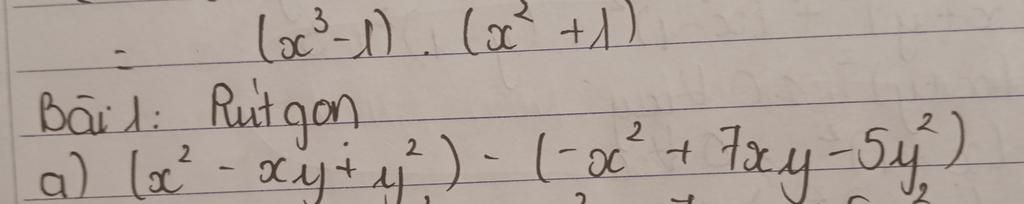 = (x³-1).(x²+1)
Bài 1: Rút gọn
a) (x² - xy + y²) - (-x² + 7xy - 5y²)